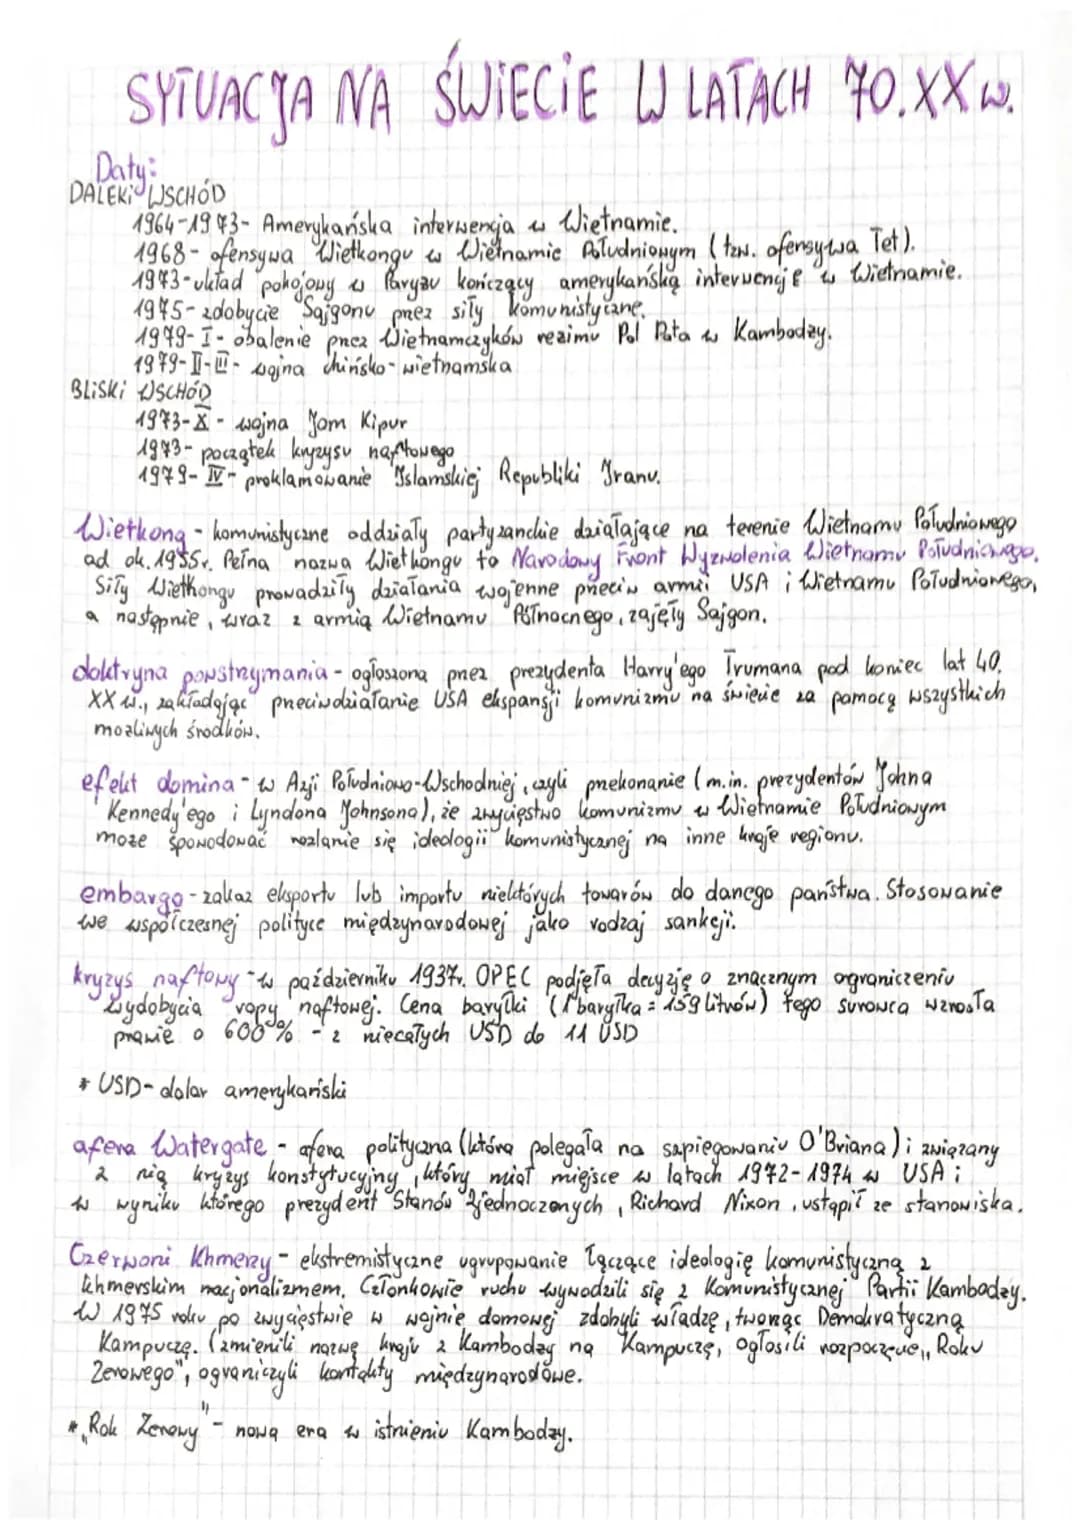 SYTUACJA NA ŚWIECIE W LATACH 70.XX w.
Daty:
DALEKI WSCHÓD
1964-1973- Amerykańska interwencja w Wietnamie.
1968- ofensywa Wietkongu w Wietnamie Południowym (tzw. ofensywa Tet).
1973-układ pokojowy w Paryżu kończący amerykańską interwencję w Wietnamie.
1975- zdobycie Sajgonu przez siły komunistyczne.
1979- I - obalenie przez Wietnamczyków reżimu Pol Pota w Kambodży.
1979-II-III- wojna chińsko-wietnamska
BLISKI WSCHÓD
1973-X - wojna Jom Kipur
1973- początek kryzysu naftowego
1979- IV- proklamowanie Islamskiej Republiki Iranu.
Wietkong - komunistyczne oddziały partyzanckie działające na terenie Wietnamu Południowego
od ok. 1955r. Pełna nazwa Wietkongu to Narodowy Front Wyzwolenia Wietnamu Południowego.
Siły Wietkongu prowadziły działania wojenne przeciw armii USA i Wietnamu Południowego,
a następnie, wraz z armią Wietnamu Północnego, zajęły Sajgon.
doktryna powstrzymania - ogłoszona przez prezydenta Harry'ego Trumana pod koniec lat 40.
XX w., zakładając przeciwdziałanie USA ekspansji komunizmu na świecie za pomocą wszystkich
możliwych środków.
efekt domina - w Azji Południowo-Wschodniej, czyli przekonanie (m.in. prezydentów Johna
Kennedy'ego i Lyndona Johnsona), że zwycięstwo komunizmu w Wietnamie Południowym
może spowodować rozlanie się ideologii komunistycznej na inne kraje regionu.
embargo - zakaz eksportu lub importu niektórych towarów do danego państwa. Stosowanie
we współczesnej polityce międzynarodowej jako rodzaj sankcji.
kryzys naftowy - w październiku 1937r. OPEC podjęła decyzję o znacznym ograniczeniu
wydobycia ropy naftowej. Cena baryłki (1 baryłka = 159 litrów) tego surowca wzrosła
prawie o 600% - z niecałych USD do 11 USD
* USD- dolar amerykański
afera Watergate - afera polityczna (która polegała na szpiegowaniu O'Briana) i związany
z nią kryzys konstytucyjny, który miał miejsce w latach 1972-1974 w USA i
w wyniku którego prezydent Stanów Zjednoczonych, Richard Nixon, ustąpił ze stanowiska.
Czerwoni Khmerzy - ekstremistyczne ugrupowanie łączące ideologię komunistyczną z
khmerskim nacjonalizmem. Członkowie ruchu wywodzili się z Komunistycznej Partii Kambodży.
W 1975 roku po zwycięstwie w wojnie domowej zdobyli władzę, tworząc Demokratyczną
Kampuczę. (zmienili nazwę kraju z Kambodży na Kampuczę, ogłosili rozpoczęcie „Roku
Zerowego", ograniczyli kontakty międzynarodowe.
* „Rok Zerowy" - nowa era w istnieniu Kambodży.